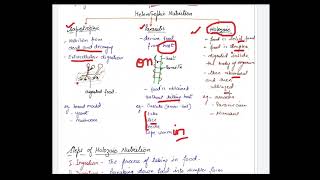 Heterotrophic Nutrition
Saprotrophic
- Nutrition from
dead and decaying
- Extracellular digestion
digested food.
eg - bread mould
- yeast
- mushroom
Parasitic
- derive food
from host
on
host
- food is obtained
without killing host
eg - Cuscuta (amar bel)
- ticks
- lice
- leeches
- tape worms
in
Holozoic
- food is solid food
- food is complex
- digested inside
the body of organism
- then absorbed and
then utilized
eg - amoeba
- Paramecium
- Humans
Steps of Holozoic Nutrition
1. Ingestion : The process of taking in food.
food into simpler form